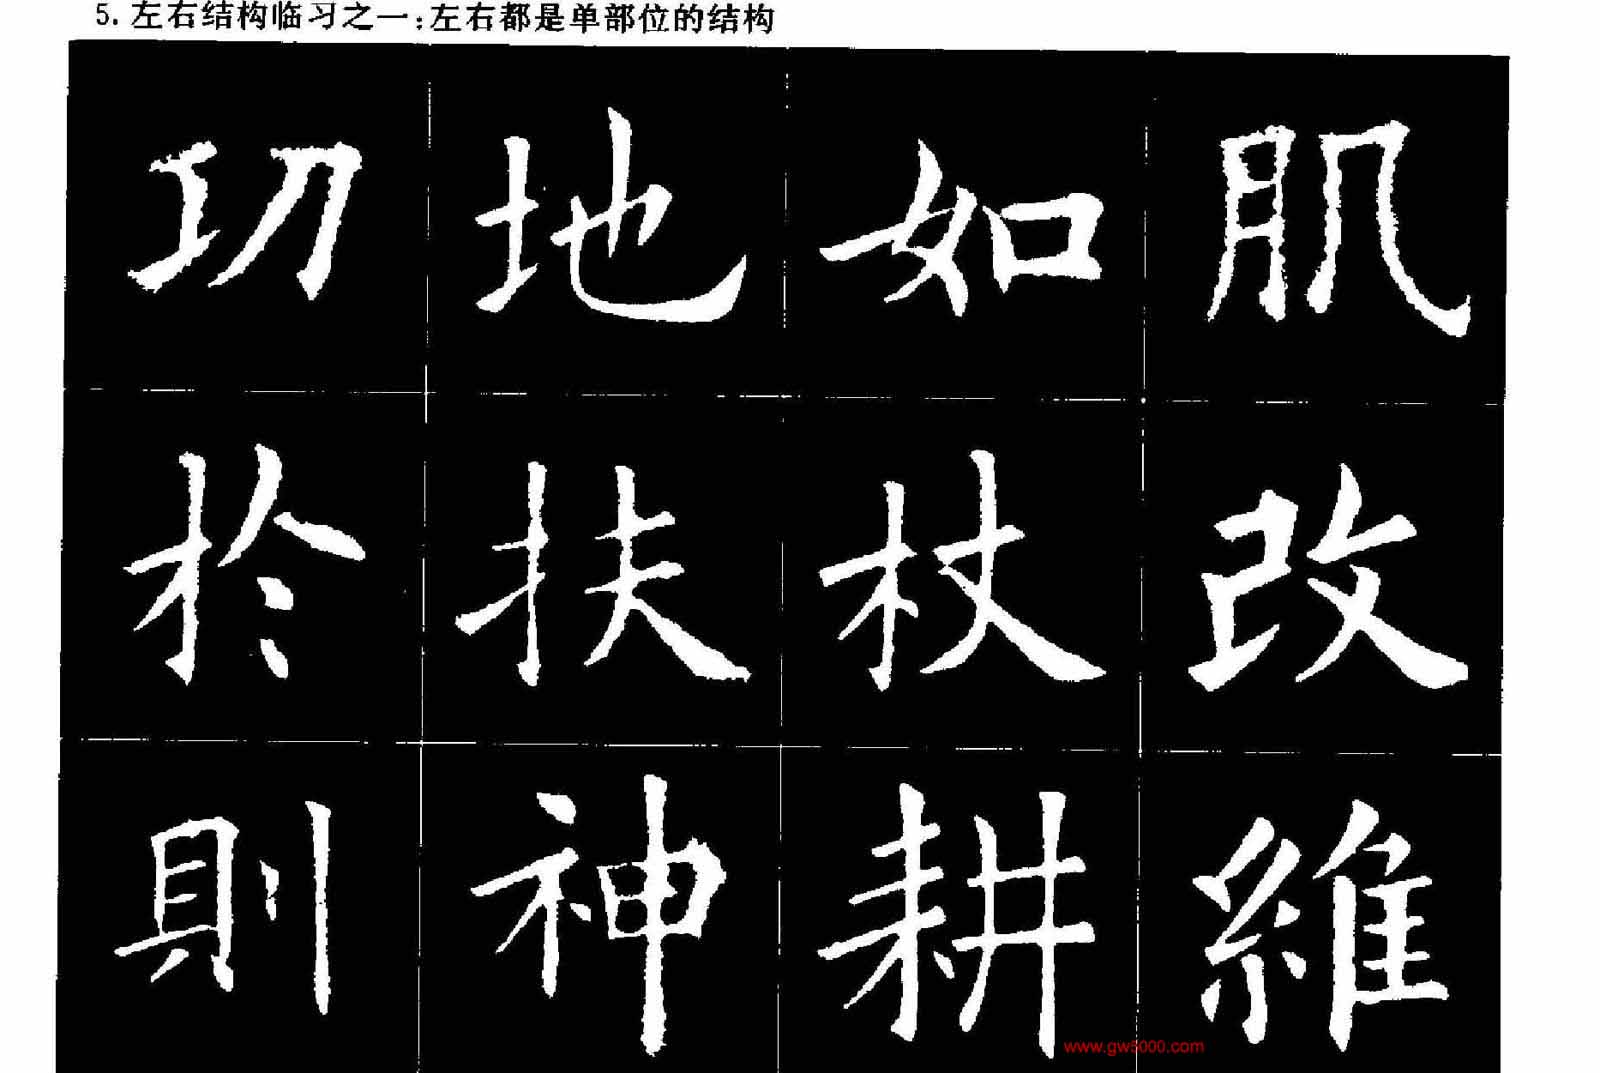 5. 左右结构临习之一：左右都是单部位的结构
功 地 如 肌
於 扶 杖 改
則 神 耕 維
www.gw5000.com